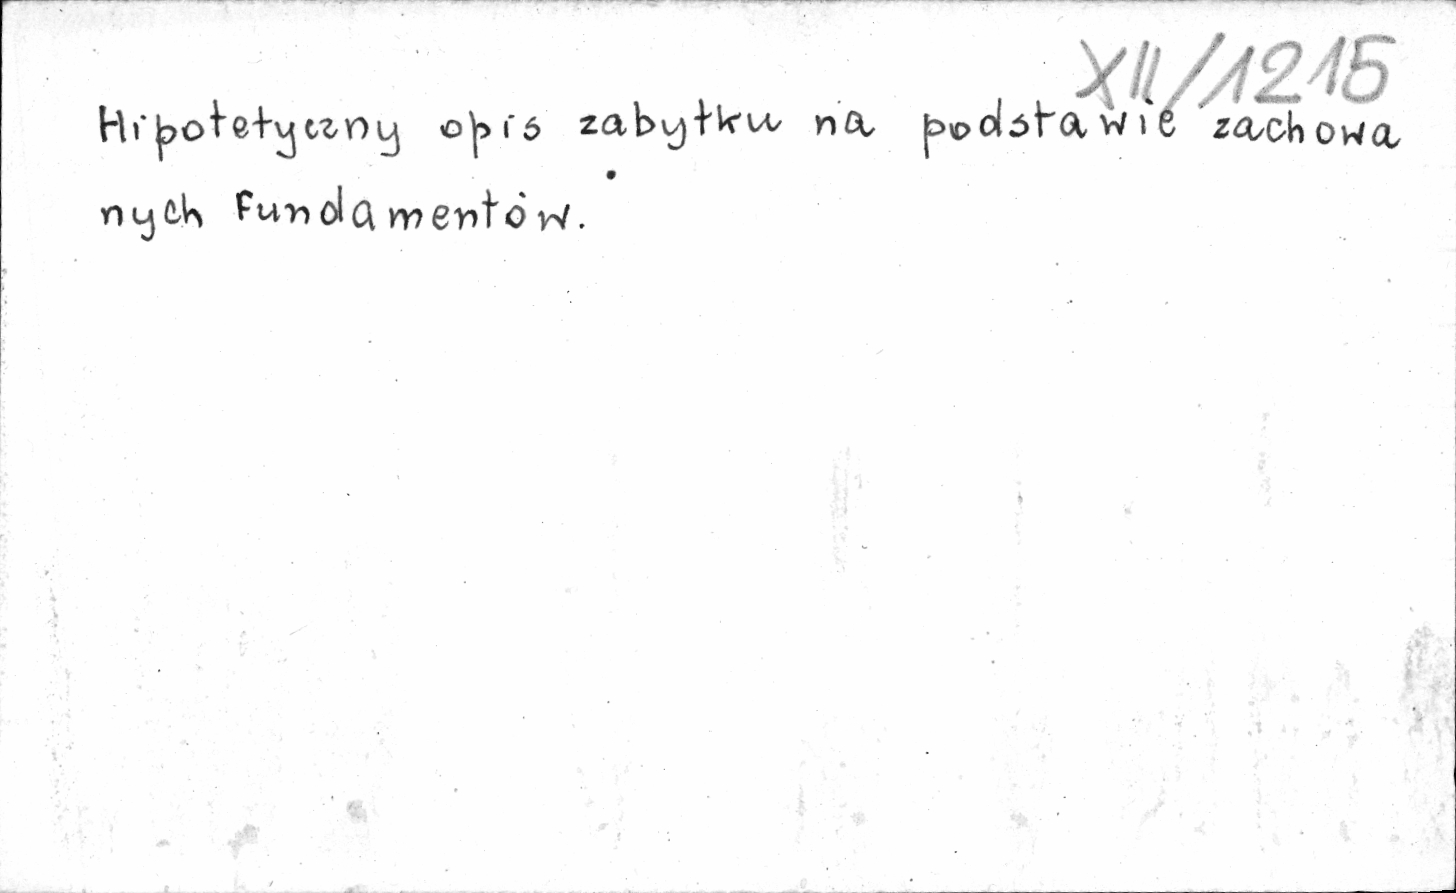 XII/1215
Hipotetyczny opis zabytku na podstawie zachowa
nych fundamentów.